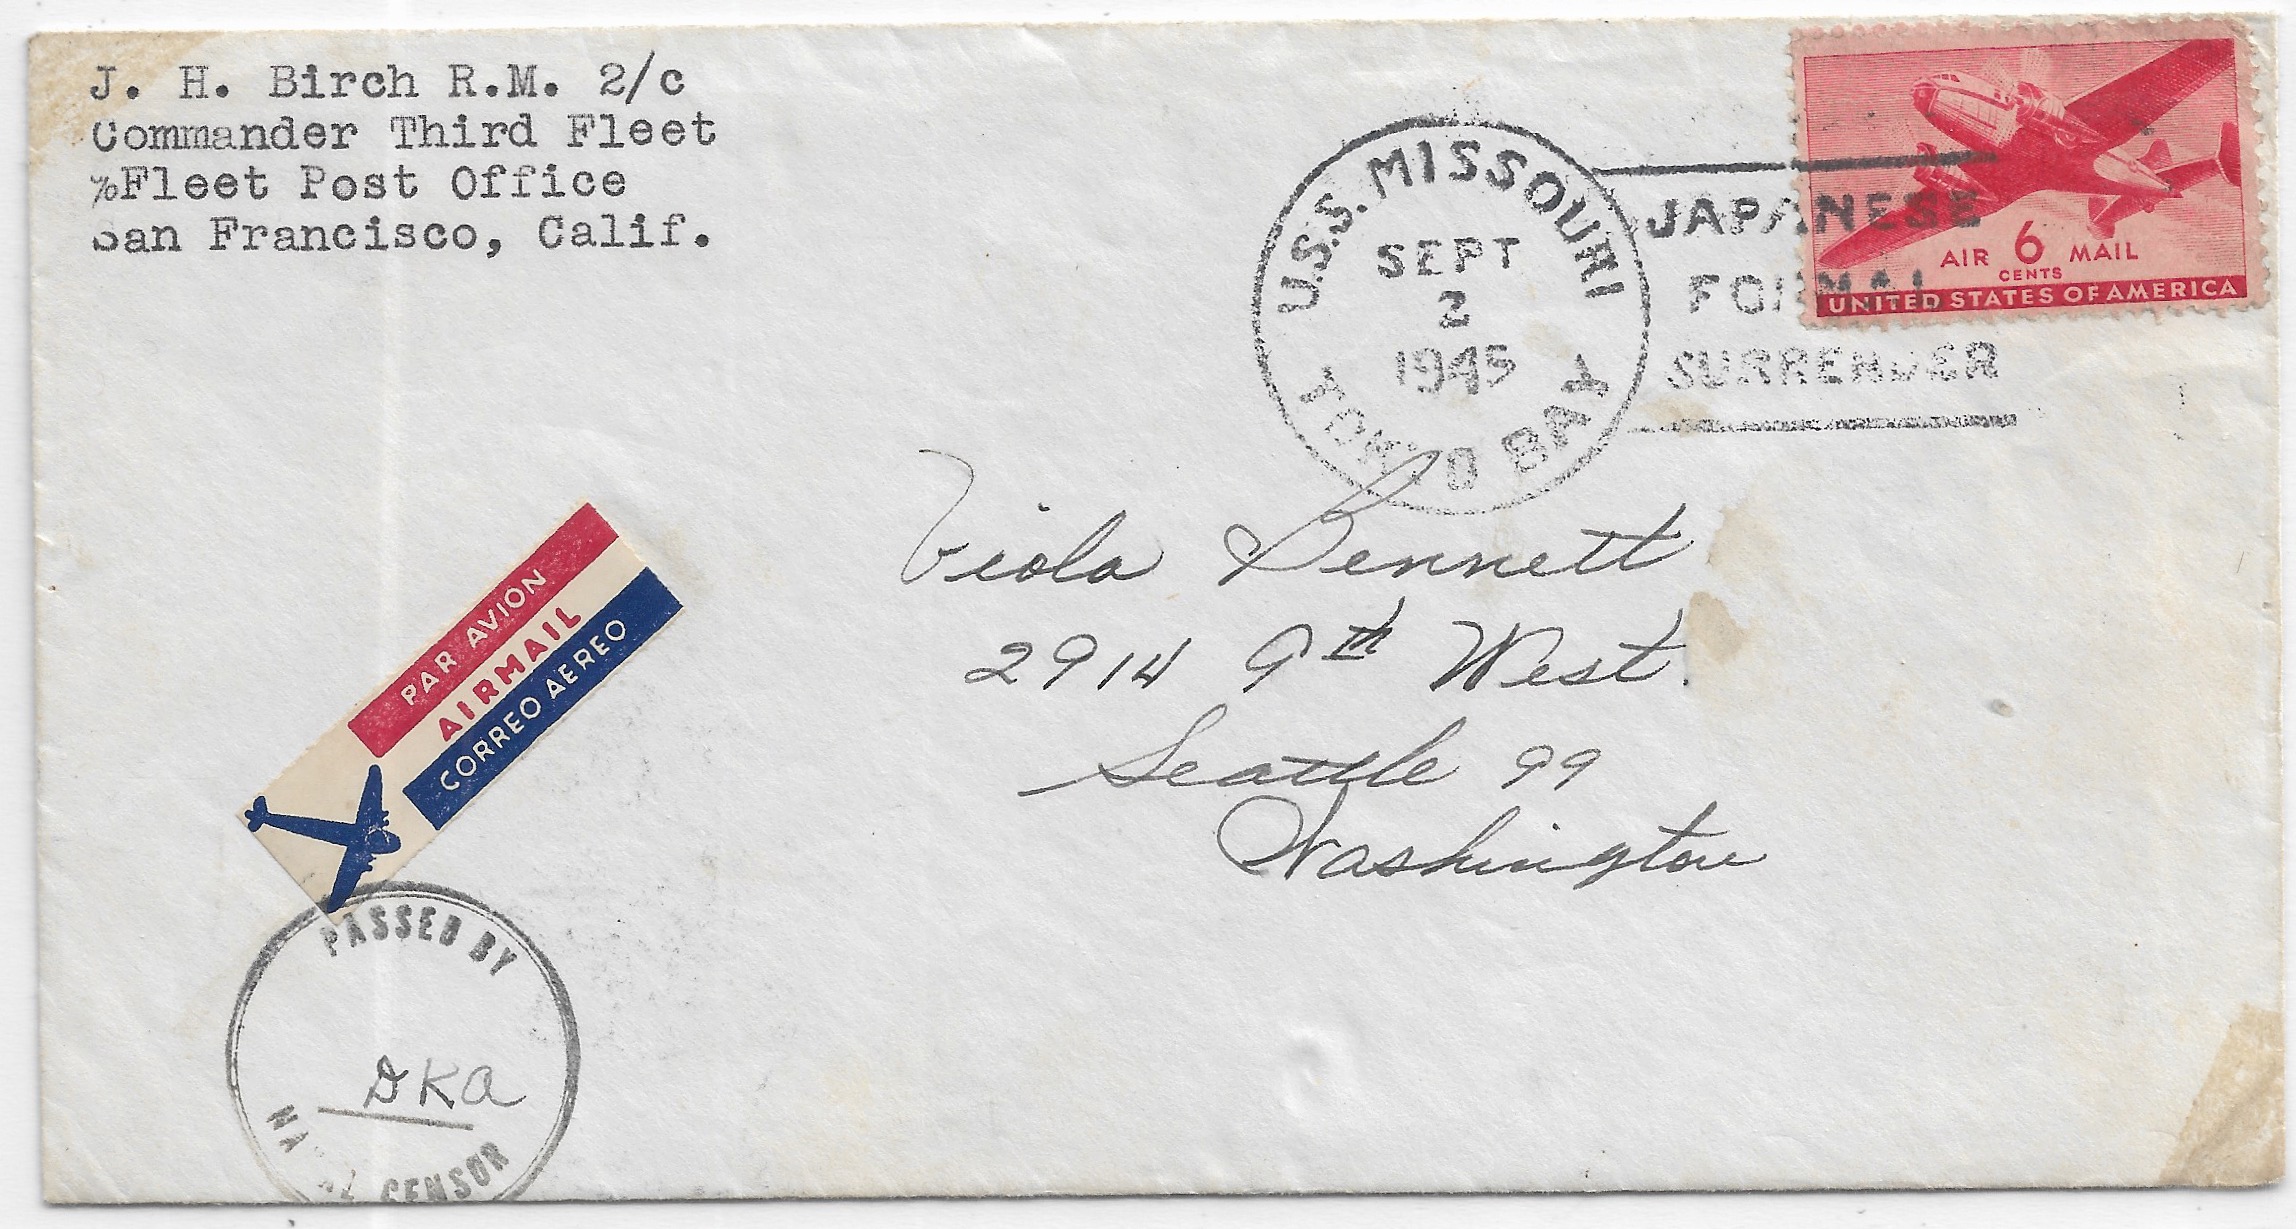 J. H. Birch R.M. 2/c
Commander Third Fleet
%Fleet Post Office
San Francisco, Calif.
U.S.S. MISSOURI
SEPT
2
1945
TOKYO BAY
JAPANESE
FORMAL
SURRENDER
AIR 6 MAIL
CENTS
UNITED STATES OF AMERICA
Viola Bennett
2914 9th West.
Seattle 99
Washington
PAR AVION
AIRMAIL
CORREO AEREO
PASSED BY
DKA
NAVAL CENSOR